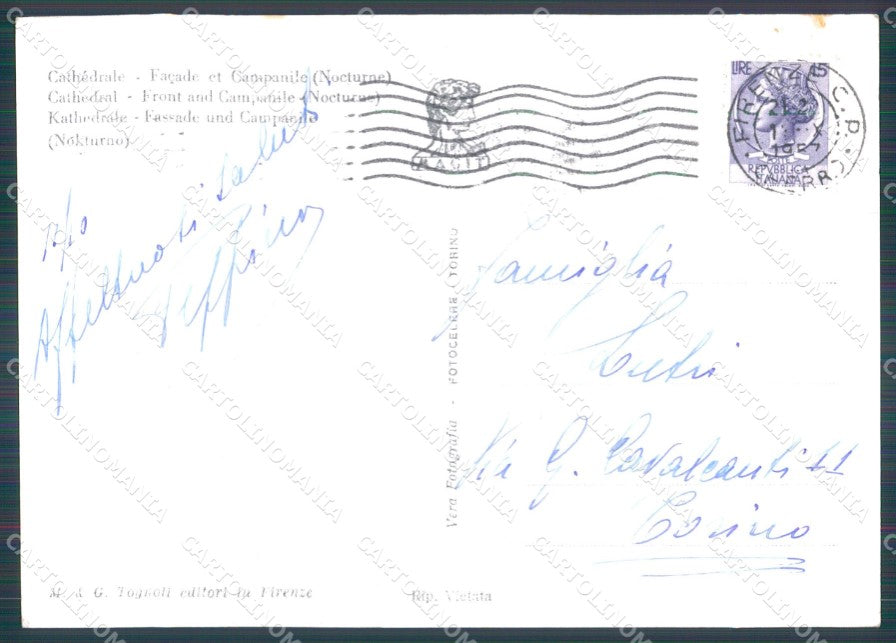 Cathédrale - Façade et Campanile (Nocturne)
Cathedral - Front and Campanile (Nocturne)
Kathedrale - Fassade und Campanile
(Nokturno)
Affettuosi saluti
LIRE 15
REPVBBLICA
ITALIANA
FIRENZE C.P.
Vera Fotografia - FOTOCELERE TORINO
Famiglia
Via G. Cavalcanti 11
Torino
M. & G. Tognoli editori in Firenze
Rip. Vietata
CARTOLINOMANIA